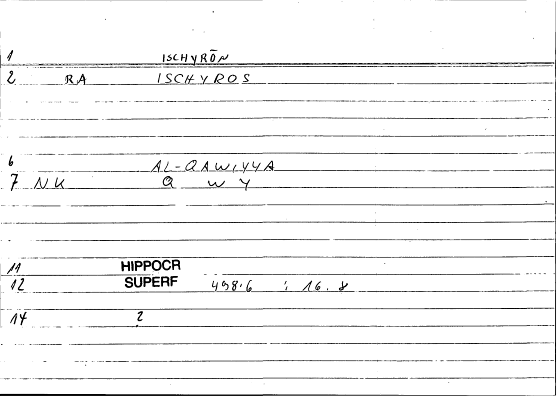 1 ISCHYRŌN
2 RA ISCHYROS
6 AL-QAWIYYA
7 NK Q W Y
11 HIPPOCR
12 SUPERF 498.6 : 16.8
14 2